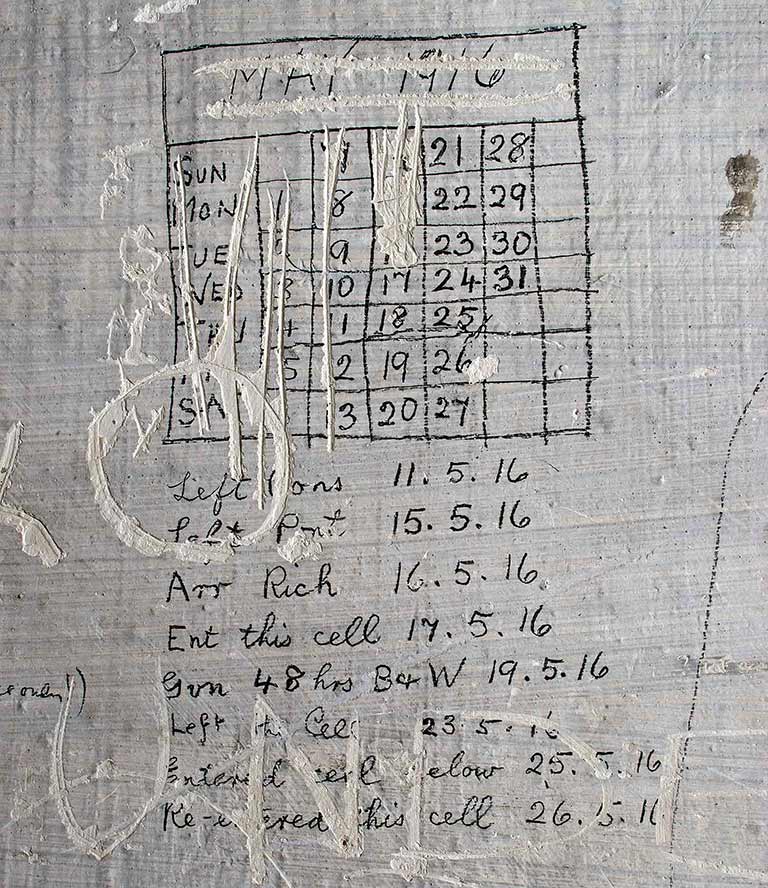 MAY 1916
SUN 21 28
MON 1 8 22 29
TUE 9 23 30
WED 3 10 17 24 31
4 11 18 25
5 12 19 26
SA 13 20 27
Left Cons 11.5.16
Left Pnt 15.5.16
Arr Rich 16.5.16
Ent this cell 17.5.16
Gvn 48 hrs B & W 19.5.16
Left Cell 23.5.16
Entered cell below 25.5.16
Re-entered this cell 26.5.16